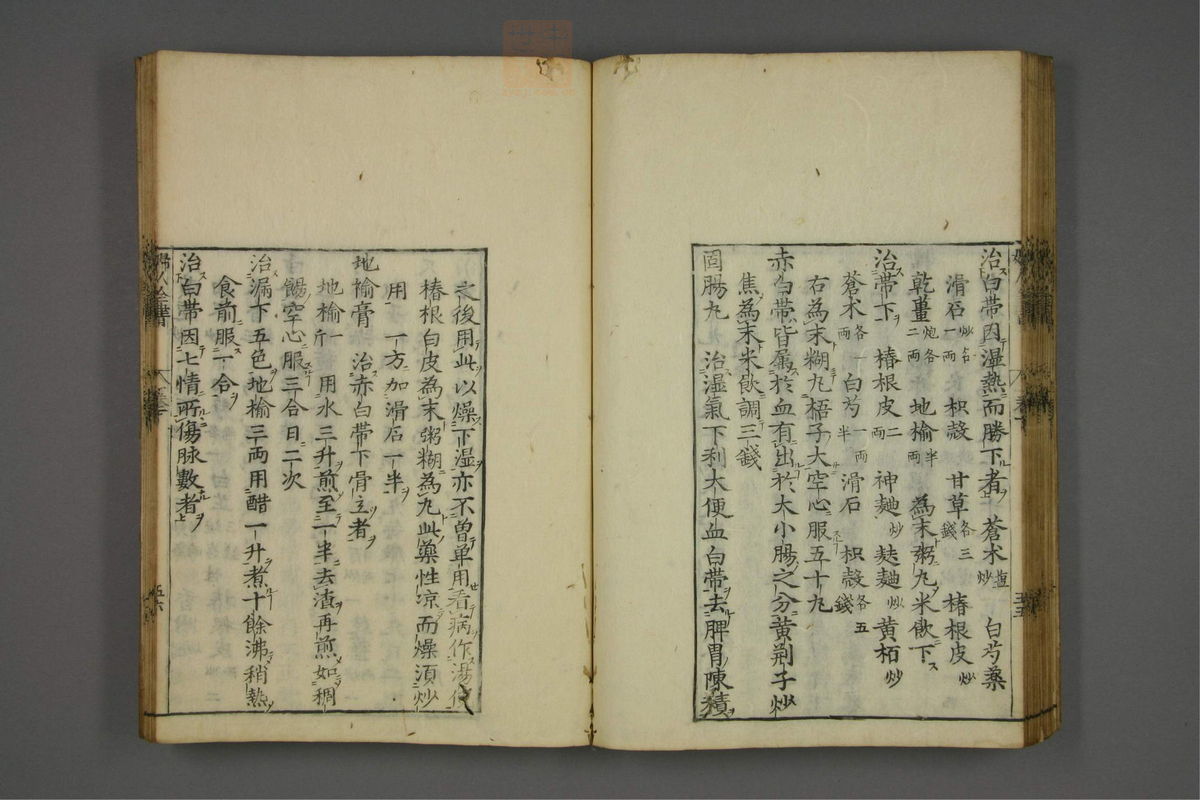 治白帶因湿熱而勝下者 蒼朮塩炒 白芍薬
滑石炒各一両 枳殼 甘草各三錢 椿根皮炒
乾薑炮各二両 地榆半両 為末粥丸米飲下
治帶下 椿根皮二両 神麯炒 麸麯炒 黄栢炒
蒼朮各一両 白芍一両半 滑石 枳殼各五錢
右為末糊丸梧子大空心服五十丸
赤白帶皆属於血有出於大小腸之分黄荆子炒
焦為末米飲調三錢
固腸丸 治湿氣下利大便血白帶去脾胃陳積
之後用此以燥下湿亦不曽单用看病作湯使
椿根白皮為末粥糊為丸此藥性凉而燥湏炒
用 一方加滑石一半
地褕膏 治赤白帶下骨立者
地榆一斤 用水三升煎至一半去渣再煎如稠
餳空心服三合日二次
治漏下五色地榆三両用醋一升煮十餘沸稍熱
食前服一合
治白帶因七情所傷脉數者
五六